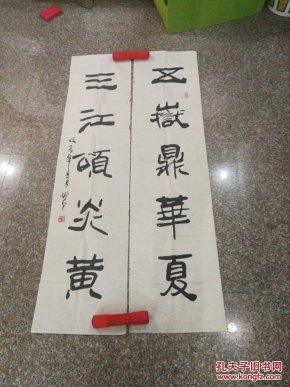 五嶽鼎華夏
三江頌炎黄
孔夫子旧书网